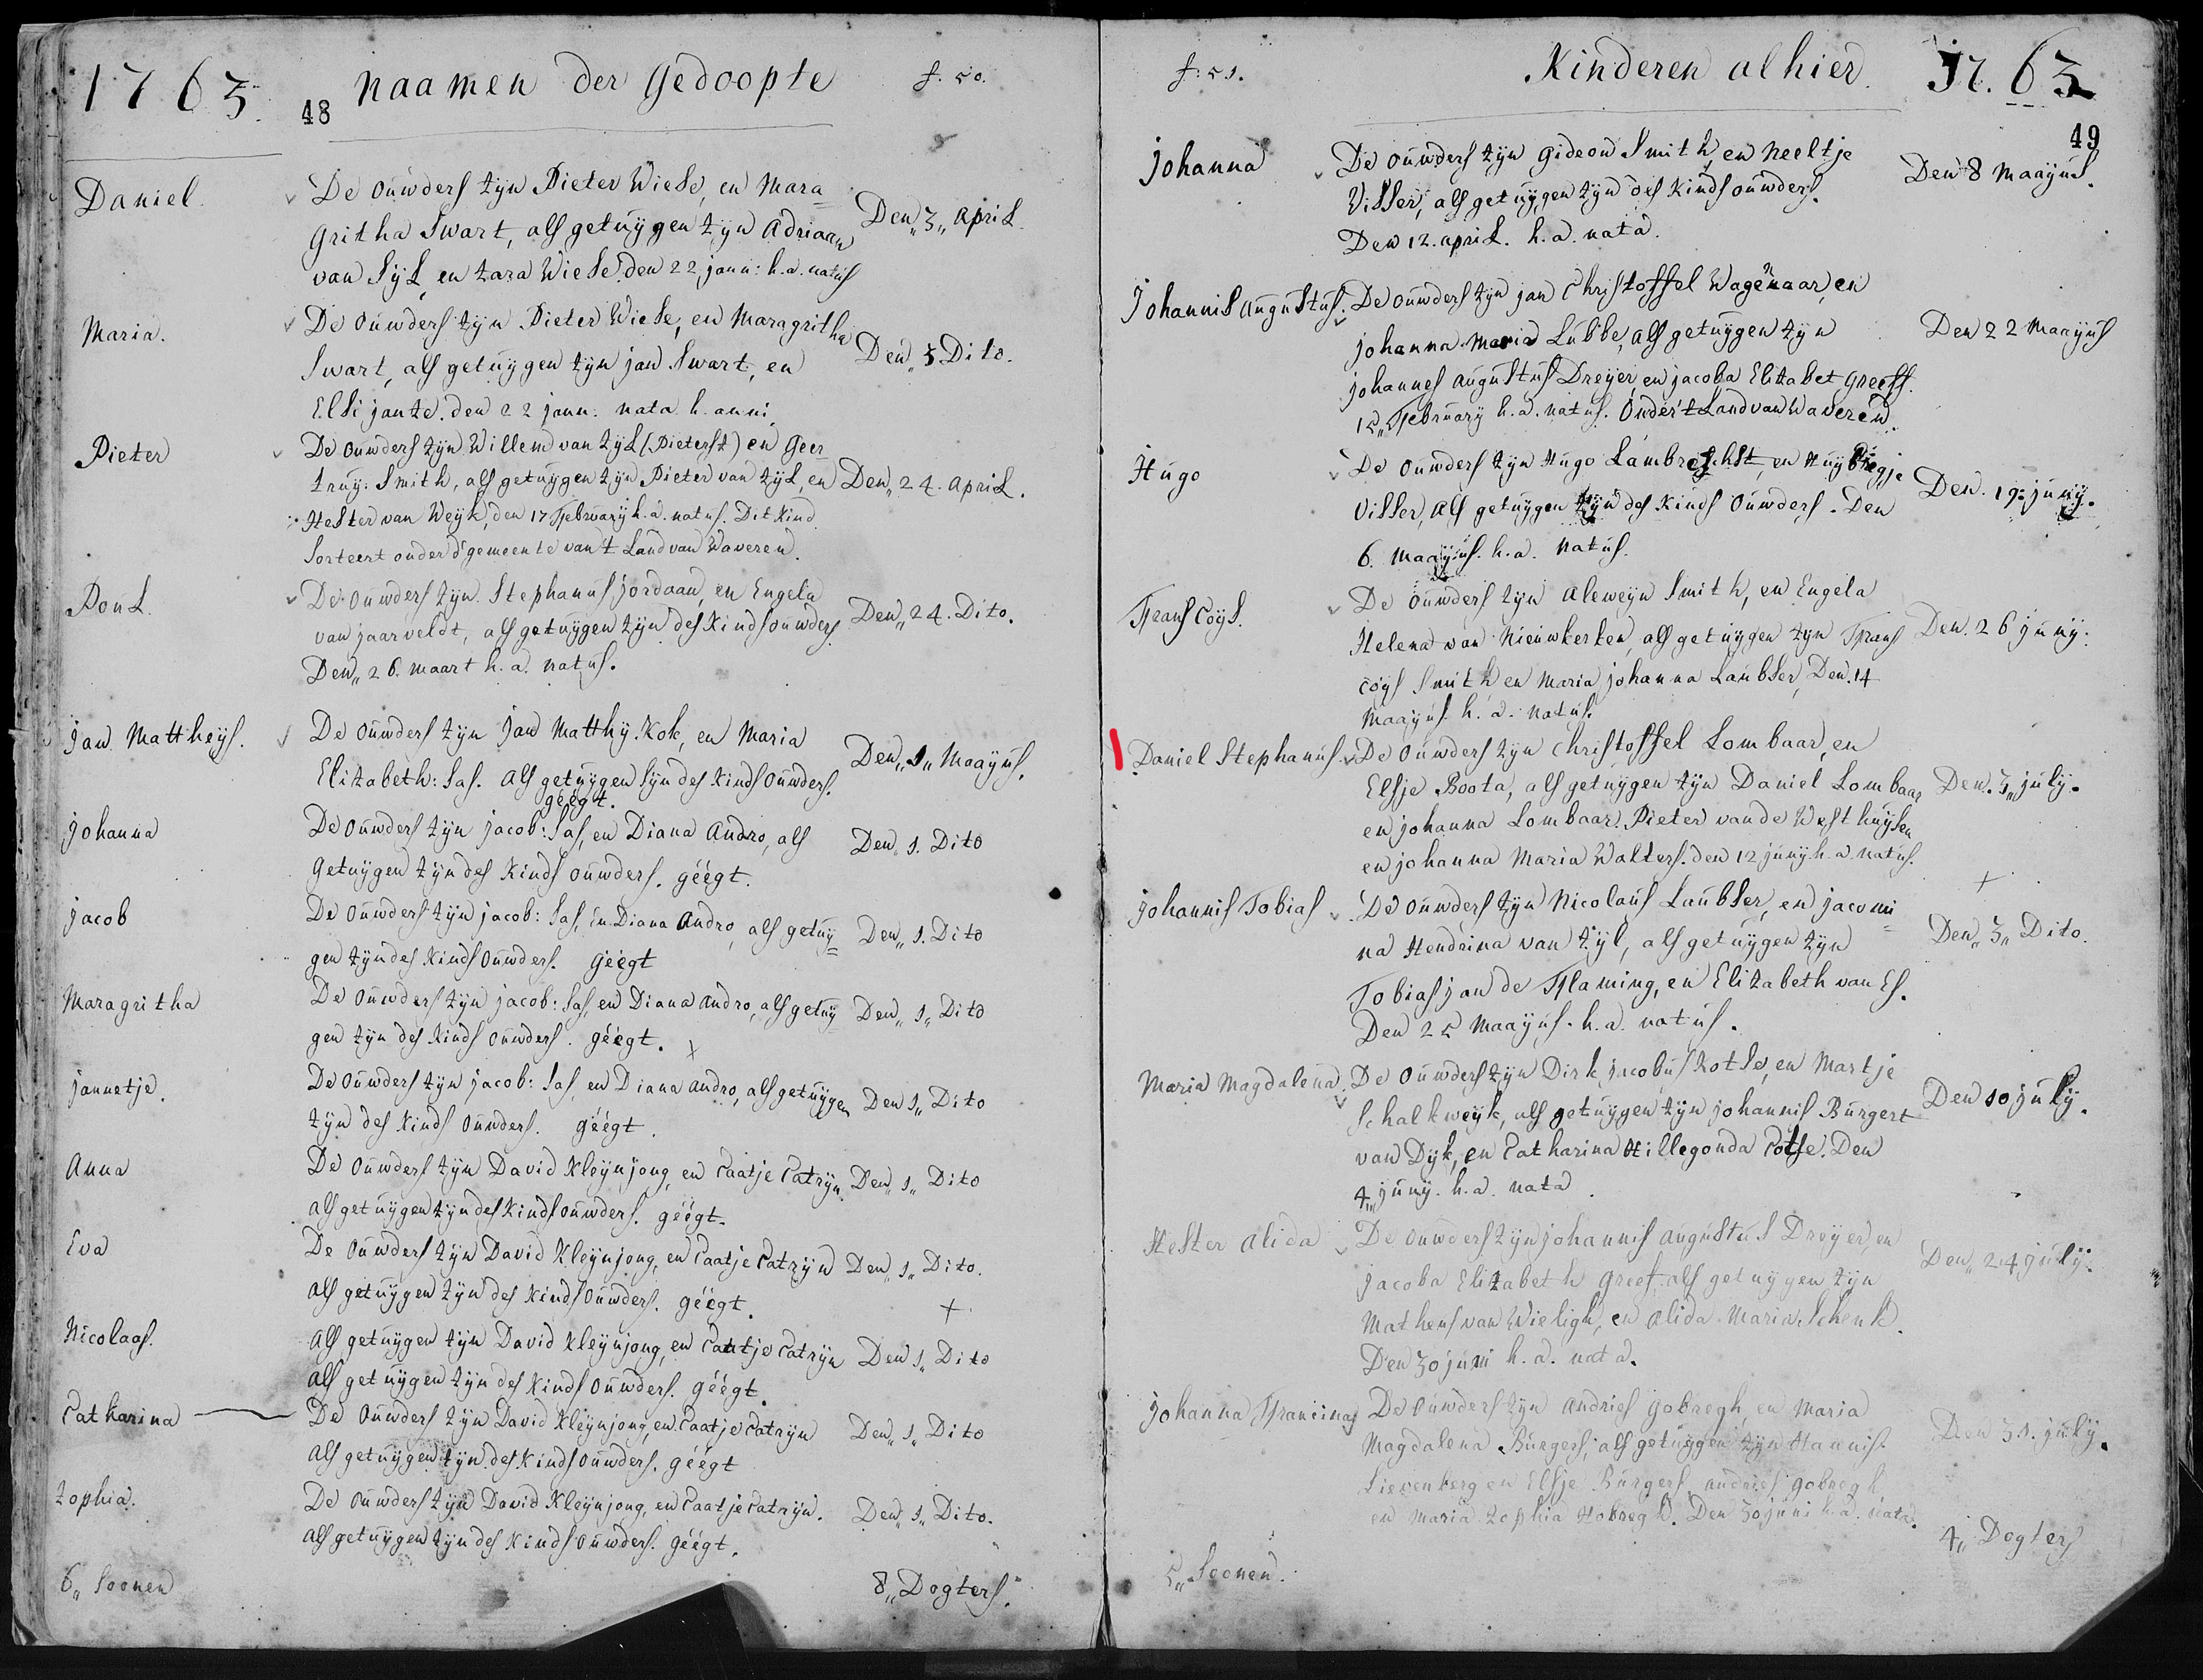 1763.
48
naamen der Gedoopte
f. 50.
Daniel.
De ouwders zyn Pieter Wiese, en Mara=
gritha Swart, als getuygen zyn Adriaan
van Sÿl, en zara Wiese. den 22 jann: h.a. natus
Den„ 3„ April.
Maria.
De Ouwders zyn Pieter Wiese, en Maragritha
Swart, als getuygen zyn jan Swart, en
Elsi jante. den 22 jann: nata h. anni.
Den„ 3 Dito.
Pieter
De ouwders zyn Willem van zyl (Pietersz) en Geer
truy: Smith, als getuygen zyn Pieter van zyl, en
Hester van Weyk, den 17 February h.a. natus. Dit Kind
Sorteert onder d'gemeente van 't Land van Waveren.
Den„ 24. April.
Poul.
De ouwders zyn Stephanus jordaan, en Engela
van jaarveldt, als getuygen zyn des Kinds ouwders
Den„ 26. maart h.a. natus.
Den„ 24. Dito.
jan Mattheys.
De ouwders zyn jan Matthy. Kok, en Maria
Elizabeth: Sas. als getuygen syn des Kinds ouwders.
geëgt.
Den„ 1„ Maayus.
johanna
De ouwders zyn jacob: Sas, en Diana Andro, als
getuygen zyn des Kinds ouwders. géégt.
Den„ 1. Dito
jacob
De ouwders zyn jacob: Sas, en Diana Andro, als getuy=
gen zyn des Kinds ouwders. géégt
Den„ 1. Dito
Maragritha
De ouwders zyn jacob: Sas, en Diana Andro, als getuy
gen zyn des Kinds ouwders. géégt.
Den„ 1„ Dito
jannetje.
De ouwders zyn jacob: Sas, en Diana Andro, als getuygen
zyn des Kinds ouwders. géégt.
Den 1„ Dito
Anna
De ouwders zyn David Kleynjong, en Caatje Catryn
als getuygen zyn des Kinds ouwders. géégt.
Den„ 1„ Dito
Eva
De ouwders zyn David Kleynjong, en Caatje Catryn
als getuygen zyn des Kinds ouwders. géégt.
Den„ 1„ Dito.
Nicolaas.
als getuygen zyn David Kleynjong, en Caatje Catryn
als getuygen zyn des Kinds ouwders. géégt
Den 1„ Dito
Catharina
De ouwders zyn David Kleynjong, en Caatje Catryn
als getuygen zyn des Kinds ouwders. géégt
Den„ 1„ Dito
zophia.
De ouwders zyn David Kleynjong, en Caatje Catryn.
als getuygen zyn des Kinds ouwders. géégt.
Den„ 1„ Dito.
6„ Soonen
8„ Dogters.
f: 51.
Kinderen alhier.
17.63
49
johanna
De ouwders zyn gideon Smith, en Neeltje
Visser, als getuygen zyn des Kinds ouwders.
Den 12. april. h.a. nata.
Den 8 Maayus.
Johannis Augustus.
De ouwders zyn jan Christoffel Wagenaar, en
johanna Maria Lubbe, als getuygen zyn
johannes Augustus Dreyer, en jacoba Elizabet Greeff.
15„ February h.a. natus. Onder 't Land van Waveren.
Den 22 Maayus
Hugo
De ouwders zyn Hugo Lambrechst, en Huybregje
Visser, als getuygen zyn des Kinds ouwders. Den
6. Maayus. h.a. natus.
Den. 19. juny.
Frans coys.
De ouwders zyn Aleweyn Smith, en Engela
Helena van Nieuwkerken, als getuygen zyn Frans
coys Smith en Maria johanna Laubser, Den. 14
Maayus. h.a. natus.
Den. 26 juny.
Daniel Stephanus.
De ouwders zyn Christoffel Lombaar, en
Elsje Boota, als getuygen zyn Daniel Lombaar
en johanna Lombaar. Pieter vande Westhuysen
en johanna Maria Walters. den 12 juny h.a. natus.
Den. 3„ july.
johannis Tobias
De ouwders zyn Nicolaus Laubser, en jacomi=
na Hendrina van zyl, als getuygen zyn
Tobias jan de Flaming, en Elizabeth van Es.
Den 25 Maayus. h.a. natus.
Den„ 3„ Dito.
Maria Magdalena.
De ouwders zyn Dirk jacobus Kotse, en Martje
Schalkweyk, als getuygen zyn johannis Burgert
van Dyk, en Catharina Hillegonda Cotse. Den
4„ juny. h.a. nata.
Den 10 july.
Hester Alida
De ouwders zyn johannis Augustus Dreyer, en
jacoba Elizabeth Greef, als getuygen zyn
Matheus van Wieligh, en Alida Maria Schenk.
Den 30 juni h.a. nata.
Den„ 24 july.
johanna Francina
De ouwders zyn Andries gobregh, en Maria
Magdalena Burgers, als getuygen zyn Hannis
Lievenberg en Elsje Burgers, andries gobregh
en Maria zophia Hobregh. Den 30 juni h.a. nata.
Den 31. july.
5„ Soonen.
4„ Dogters